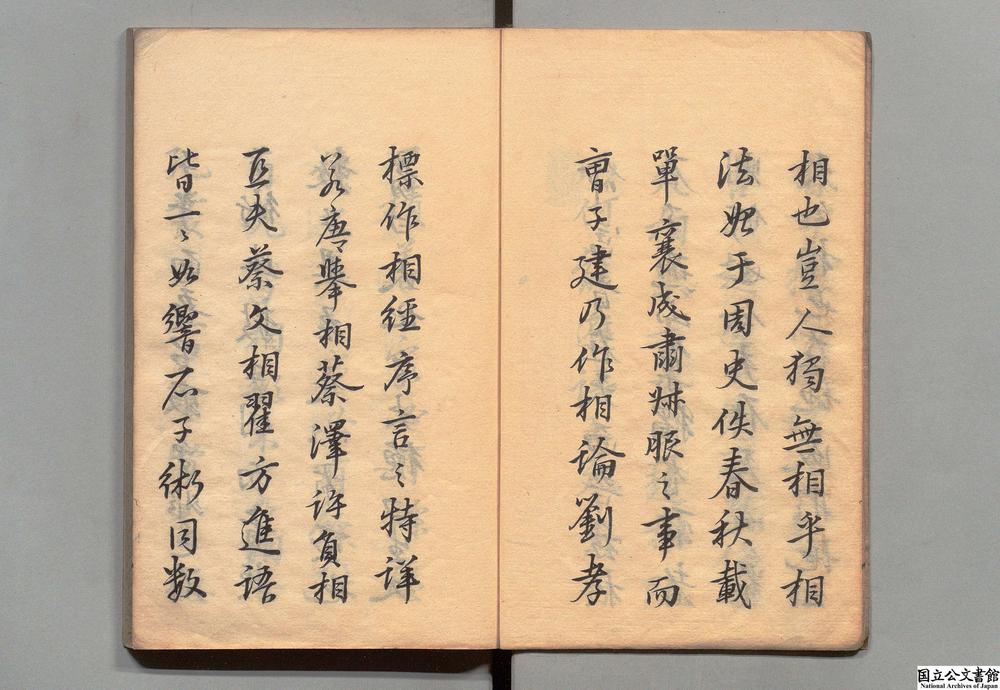 相也豈人獨無相乎相
法始于周史佚春秋載
單襄成肅叔服之事而
曹子建乃作相論劉孝
標作相經序言之特詳
若唐舉相蔡澤許負相
亞夫蔡父相翟方進語
皆一々如響石子術同数
国立公文書館
National Archives of Japan